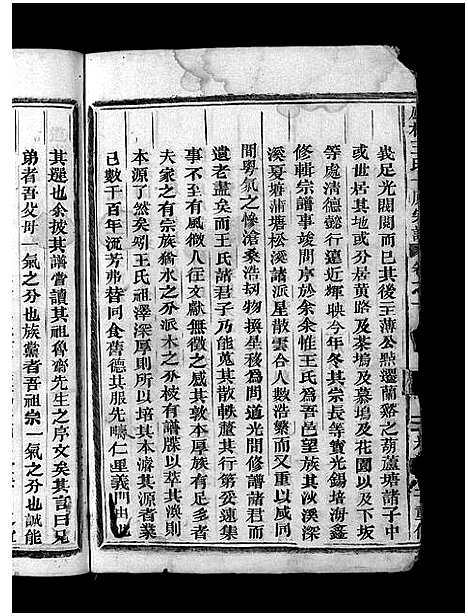 王氏
我足光閥閱而已其後至薄公點遷蘭谿之葫蘆塘諸子中
或世居其地或分居黄路及茶塢及墓塢及花園以及下坂
等處清德懿行遠近輝映今年冬其宗長等寶光錫培海鑫
修輯宗譜事竣問序於余余惟王氏為吾邑望族其沙溪深
溪夏塘蒲塘松溪諸派星散雲合人數浩繁而又重以咸同
間粤氛之慘滄桑浩刼物換星移為間道光間修譜諸君而
遺老盡矣而王氏諸君子乃能蒐其散軼釐其蕃變遠集
事不至有風微人往文獻無徵之感其敦本厚族有足多者
夫家之有宗族猶水之分派木之分枝有譜牒以萃其渙則
本源了然矣矧王氏祖澤深厚則所以培其本濬其源者業
已數千百年流芳弗替同食舊德其服先疇仁里義門由此
其選也余披其譜嘗讀其祖魯齋先生之序文矣其言曰兄
弟者吾父母一氣之分也族黨者吾祖宗一氣之分也誠能